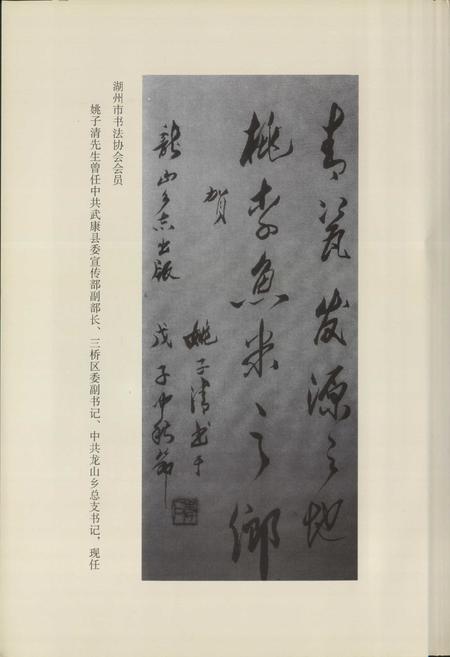 青瓷发源之地
桃李鱼米之乡
贺
龙山乡志出版
姚子清书于
戊子中秋节
姚子清先生曾任中共武康县委宣传部副部长、三桥区委副书记、中共龙山乡总支书记，现任
湖州市书法协会会员